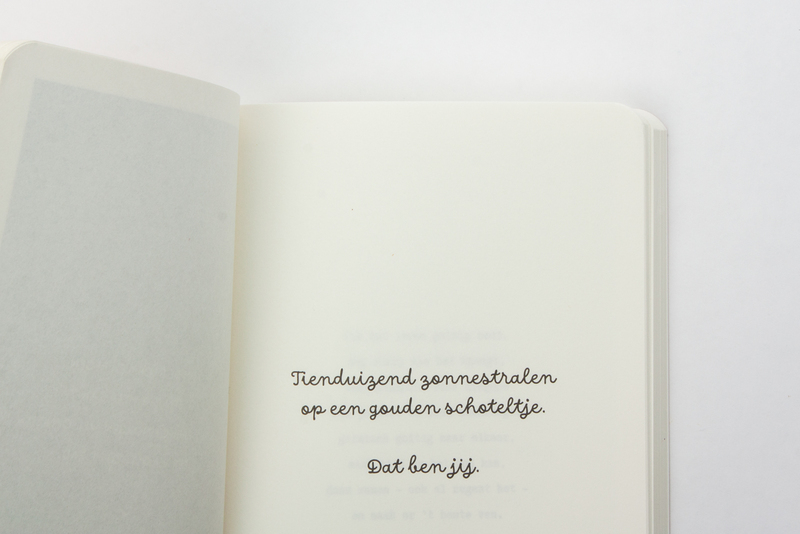 Tienduizend zonnestralen
op een gouden schoteltje.
Dat ben jij.